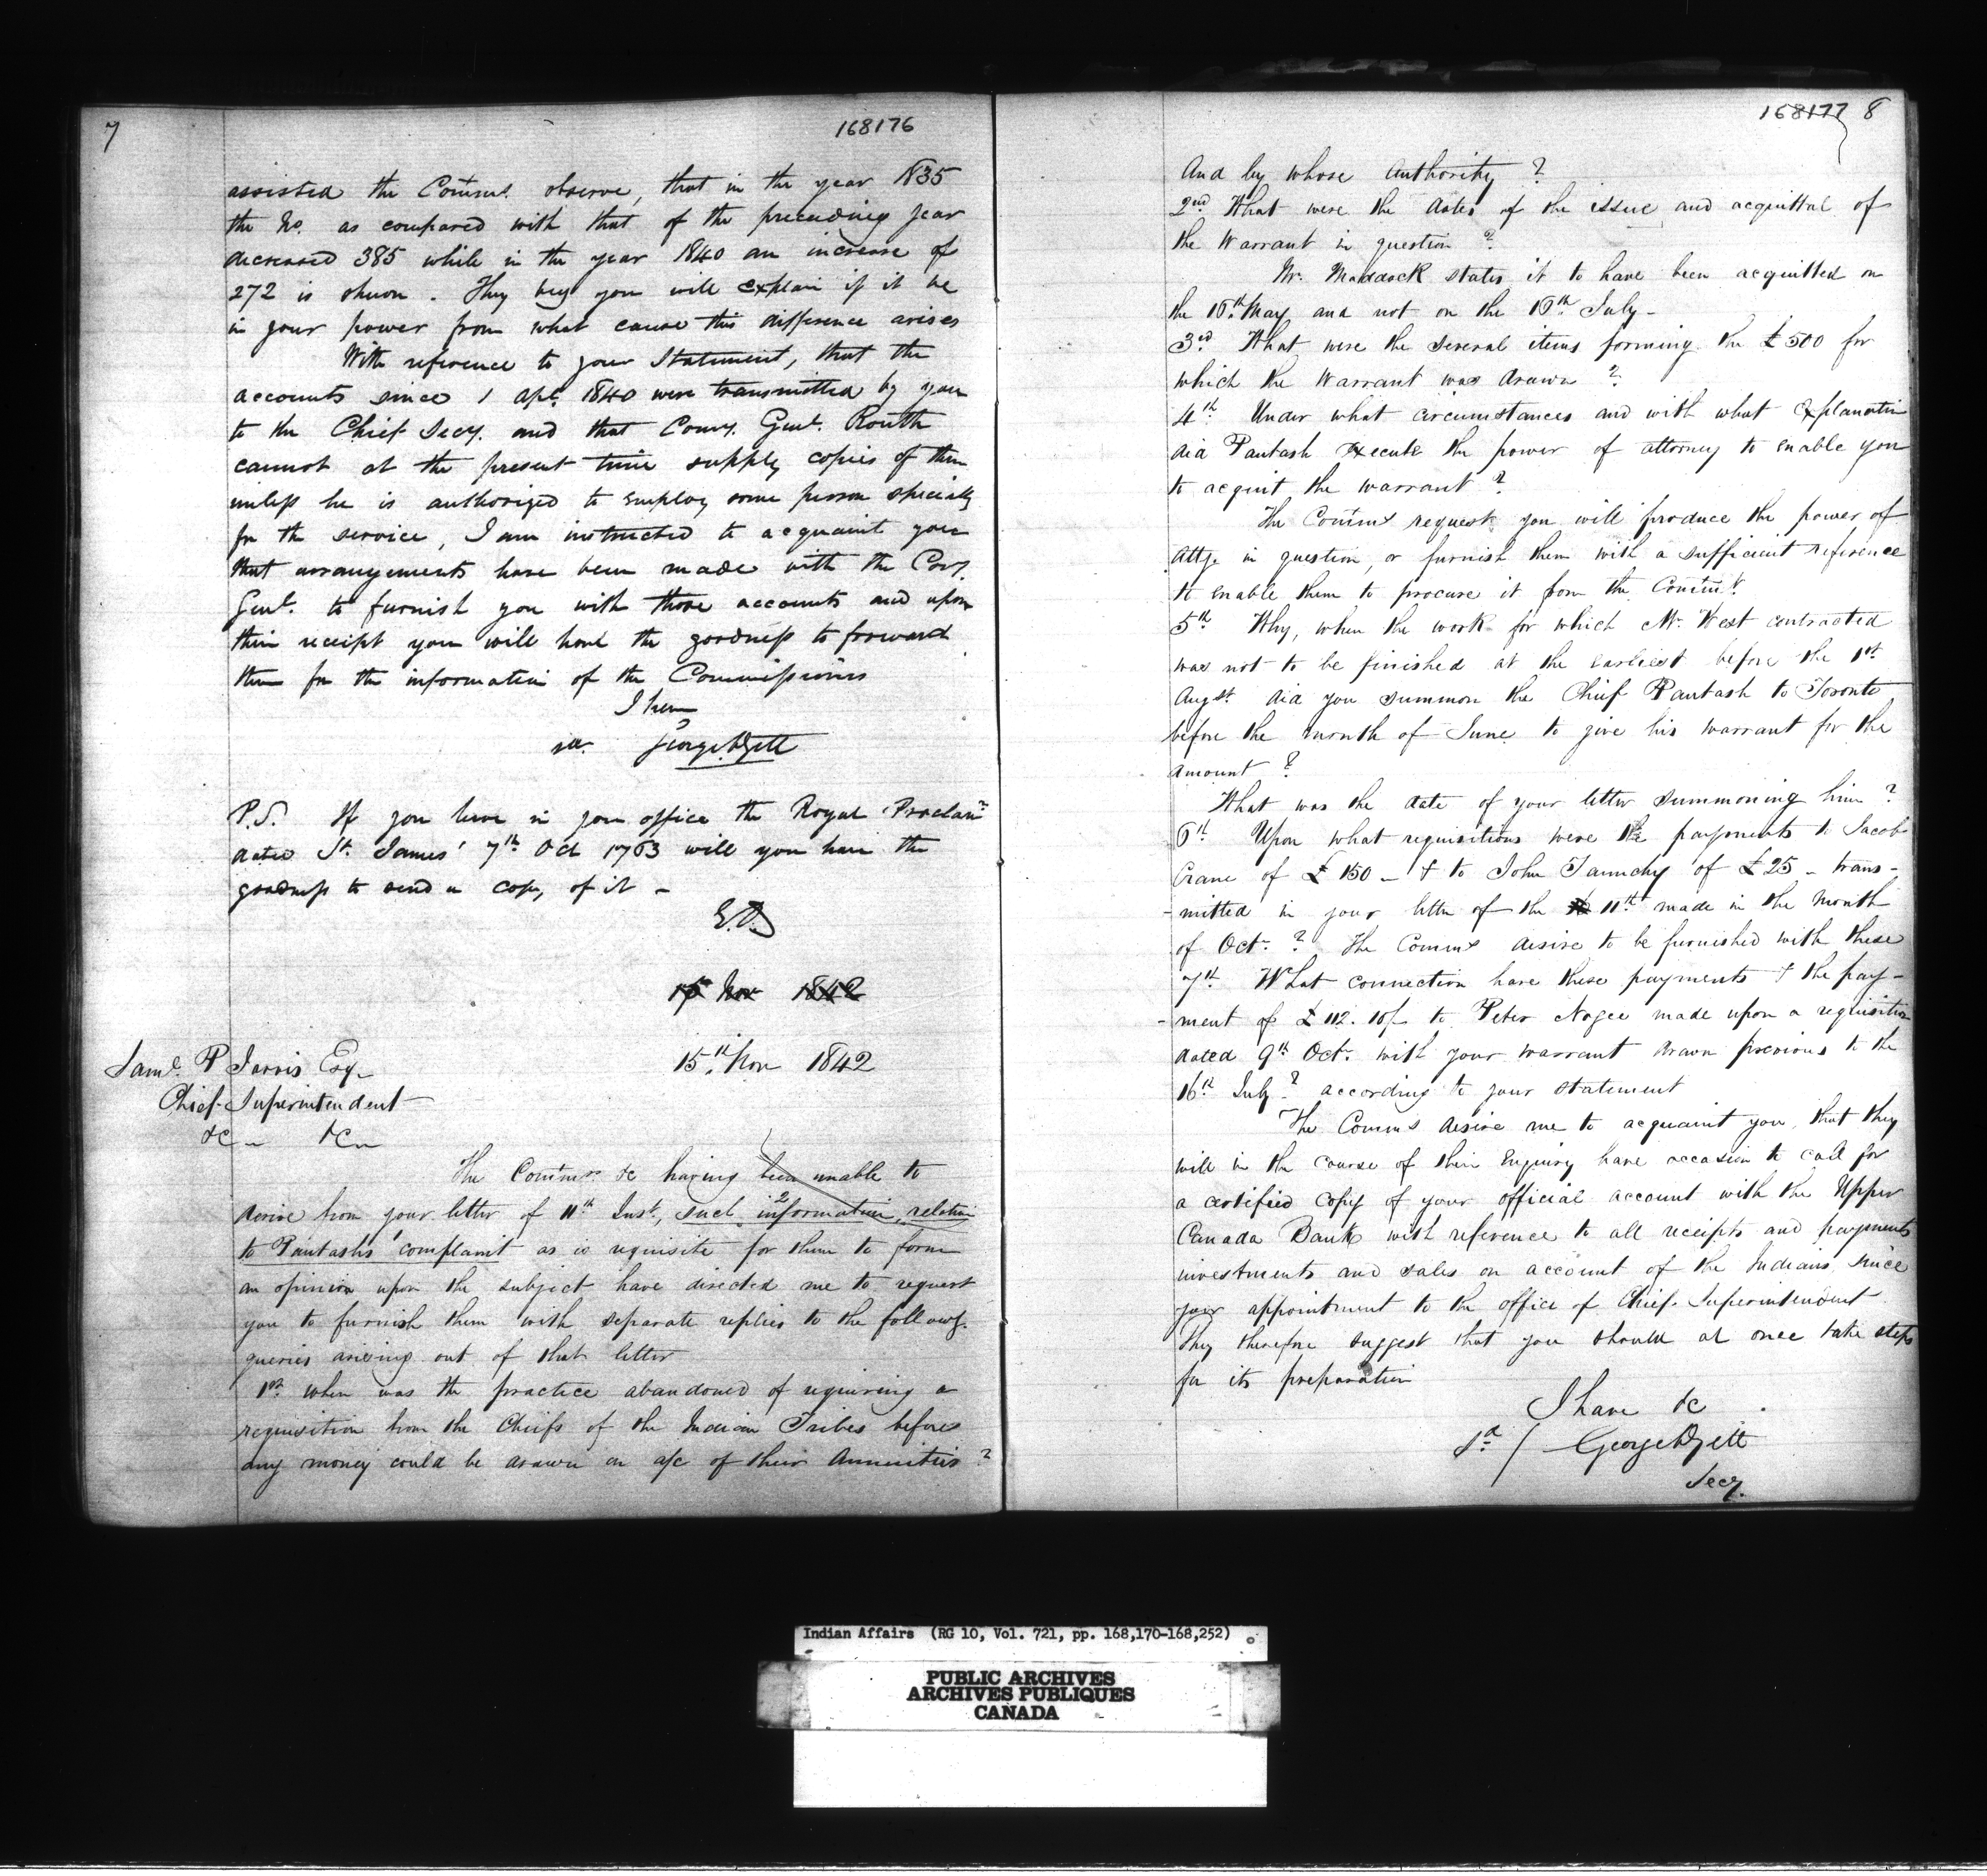 7
168176
assisted the Comrs. observe, that in the year 1835
the No. as compared with that of the preceding year
decreased 385 while in the year 1840 an increase of
272 is shewn. They beg you will explain if it be
in your power from what cause this difference arises
With reference to your Statement, that the
accounts since 1 apl. 1840 were transmitted by you
to the Chief Secy. and that Comy. Genl. Routh
cannot at the present time supply copies of them
unless he is authorized to employ some person specially
for the service, I am instructed to acquaint you
that arrangements have been made with the Comy.
Genl. to furnish you with those accounts and upon
their receipt you will have the goodness to forward
them for the information of the Commissioners
I have
George
P.S. If you have in your office the Royal Proclamn
dated St. James' 7th Oct 1763 will you have the
goodness to send a copy of it -
15 Nov 1842
15th Nov 1842
Saml. P Jarvis Esq.
Chief Superintendent
&c &c
The Comrs &c having been unable to
derive from your letter of 11th Inst, such information relative
to Pautashs' complaint as is requisite for them to form
an opinion upon the subject have directed me to request
you to furnish them with separate replies to the followg.
queries arising out of that letter
1st when was the practice abandoned of requiring a
requisition from the Chiefs of the Indian Tribes before
any money could be drawn on a/c of their Annuities?
168177 8
And by whose Authority ?
2nd What were the dates of the issue and acquittal of
the Warrant in question ?
Mr. Maddock states it to have been acquitted on
the 16th May and not on the 16th July -
3rd What were the several items forming the £500 for
which the Warrant was drawn ?
4th Under what circumstances and with what explanation
did Pautash execute the power of attorney to enable you
to acquit the warrant ?
The Comrs request you will produce the power of
Atty. in question, or furnish them with a sufficient reference
to enable them to procure it from the
5th Why, when the work for which Mr. West contracted
was not to be finished at the earliest before the 1st
Augst. did you summon the Chief Pautash to Toronto
before the month of June to give his warrant for the
amount ?
What was the date of your letter summoning him ?
6th Upon what requisitions were the payments to Jacob
Crane of £150 - & to John of £25 - trans-
-mitted in your letter of the 11th made in the Month
of Oct. ? The Comrs desire to be furnished with these
7th What connection have these payments & the pay-
-ment of £112. 10/- to Peter Nogee made upon a requisition
dated 9th Oct. with your warrant drawn previous to the
16th July ? according to your statement
The Comrs desire me to acquaint you, that they
will in the course of their Enquiry have occasion to call for
a certified copy of your official account with the Upper
Canada Bank with reference to all receipts and payments
investments and sales on account of the Indians since
your appointment to the office of Chief Superintendent
They therefore suggest that you should at once take steps
for its preparation
I have &c
Sd / George
Secy.
Indian Affairs (RG 10, Vol. 721, pp. 168,170-168,252)
PUBLIC ARCHIVES
ARCHIVES PUBLIQUES
CANADA